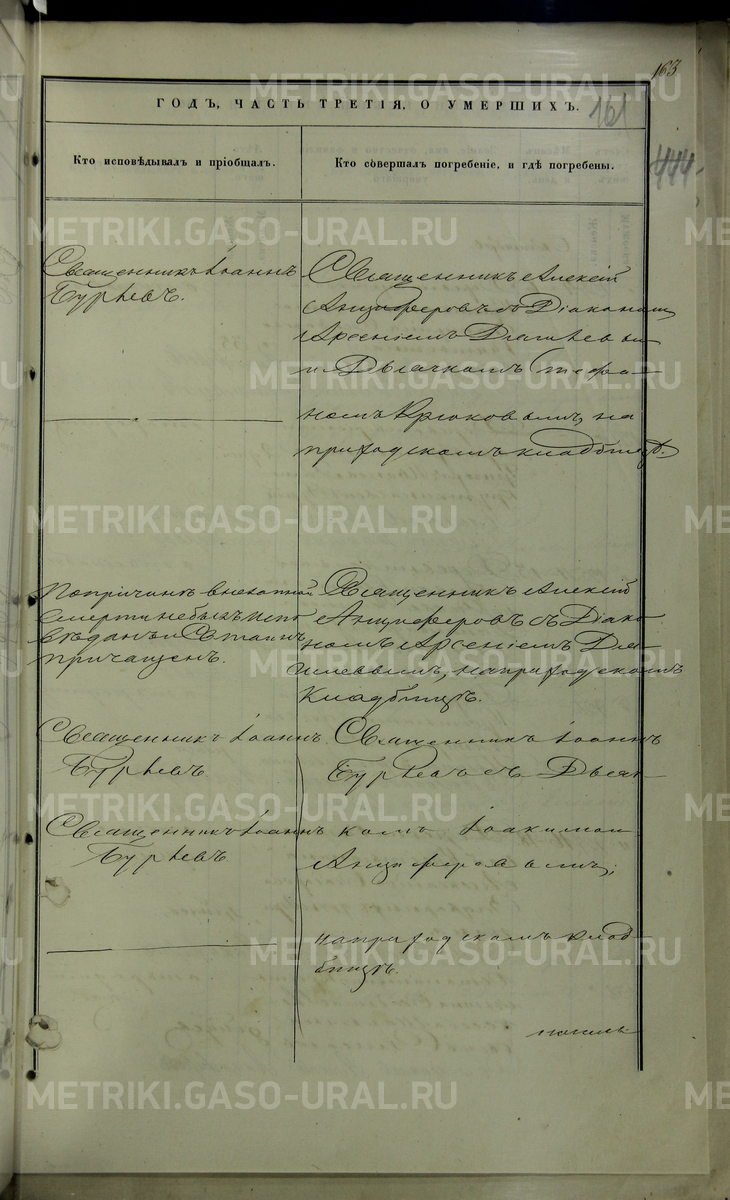 163
ГОДЪ, ЧАСТЬ ТРЕТІЯ, О УМЕРШИХЪ.
161
444
Кто исповѣдывалъ и пріобщалъ.
Кто совершалъ погребеніе, и гдѣ погребены.
Священникъ Іоаннъ
Бурѣевъ.
Священникъ Алексій
Анциферовъ съ Діакономъ
Арсеніемъ
и Дьячкомъ Стефа-
номъ Крюковымъ, на
приходскомъ кладбищѣ.
По причинѣ внезапной
смерти не былъ испо
вѣданъ и Св. таинъ
причащенъ.
Священникъ Алексій
Анциферовъ съ Діако
номъ Арсеніемъ
на приходскомъ
кладбищѣ.
Священникъ Іоаннъ
Бурѣевъ
Священникъ Іоаннъ
Бурѣевъ
Священникъ Іоаннъ
Бурѣевъ съ Дьяч-
комъ Іоакимом
Анциферовымъ,
на приходскомъ клад-
бищѣ.
METRIKI.GASO-URAL.RU